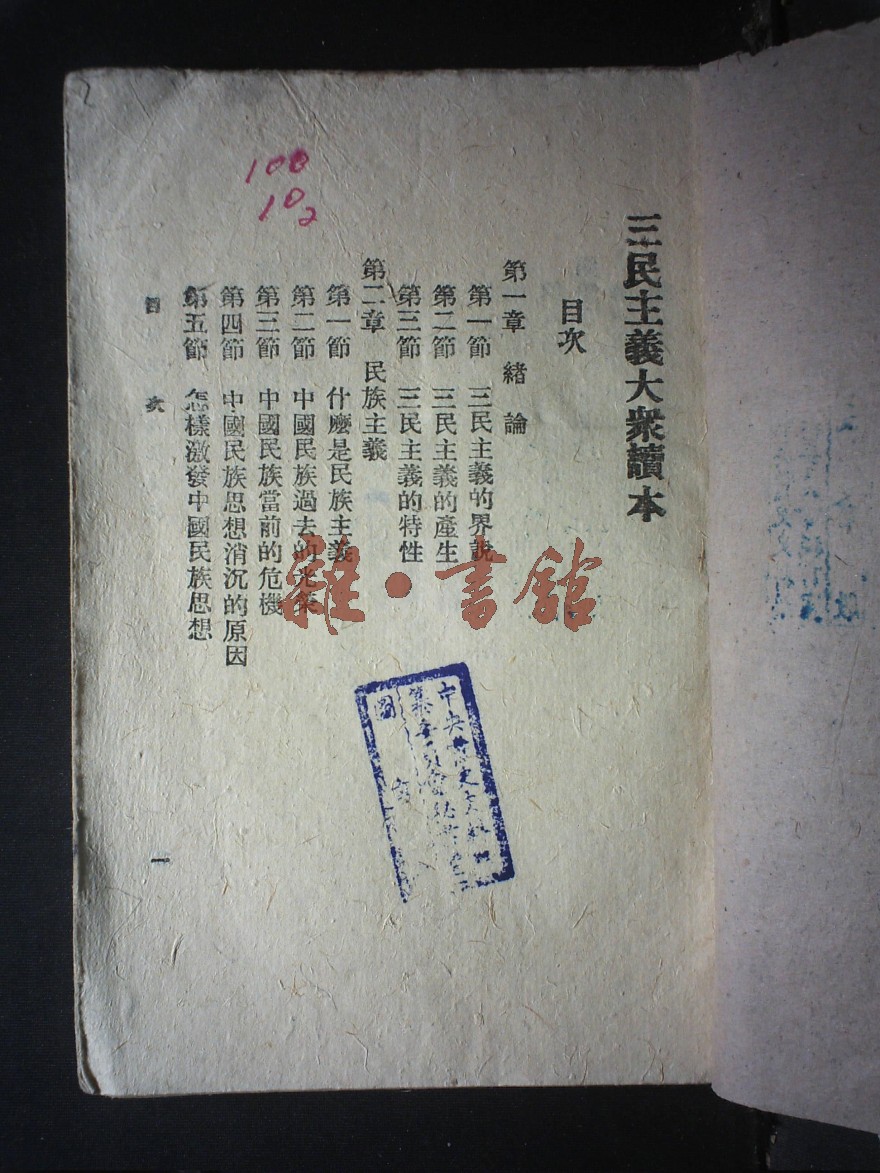 三民主義大衆讀本
目次
第一章 緒論
第一節 三民主義的界說
第二節 三民主義的產生
第三節 三民主義的特性
第二章 民族主義
第一節 什麽是民族主義
第二節 中國民族過去的光榮
第三節 中國民族當前的危機
第四節 中國民族思想消沉的原因
第五節 怎樣激發中國民族思想
目次
一
100
102
雜·書館
中央黨史史料
圖